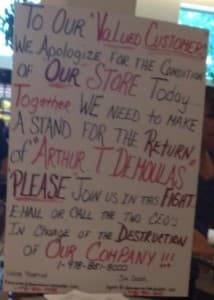 To Our "Valued Customers"
We Apologize for the Condition
of "Our" Store Today...
Together We need to make
A Stand for the Return
of "Arthur T Demoulas"
"Please" Join us in this Fight
Email or call the two CEO's
In Charge of the Destruction
of Our Company!!!
1-978-851-8000